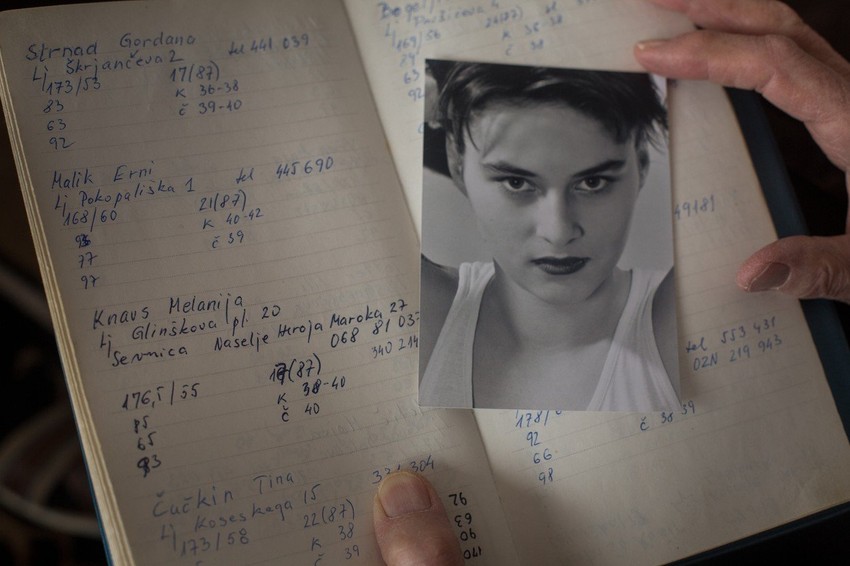 Strnad Gordana
Lj Škrjančeva 2 tel 441 039
173/53 17(87)
83 K 36-38
63 č 39-40
92
Malik Erni
Lj Pokopališka 1 tel 445 690
168/60 21(87)
K 40-42
77 č 39
97
Knavs Melanija
Lj Glinškova pl. 20
Sevnica Naselje Heroja Maroka 27
068 81 03-
340 214
176,5/55 (87)
85 K 38-40
65 č 40
93
Čučkin Tina
Lj Koseskega 15
173/58 22(87)
K 38
č 39
304
92
63
90
170
24(87) tel
169/56 K 36-38
č 38
63
92
49181
tel 553 431
OZN 219 943
178/
92 č 38 39
66
98